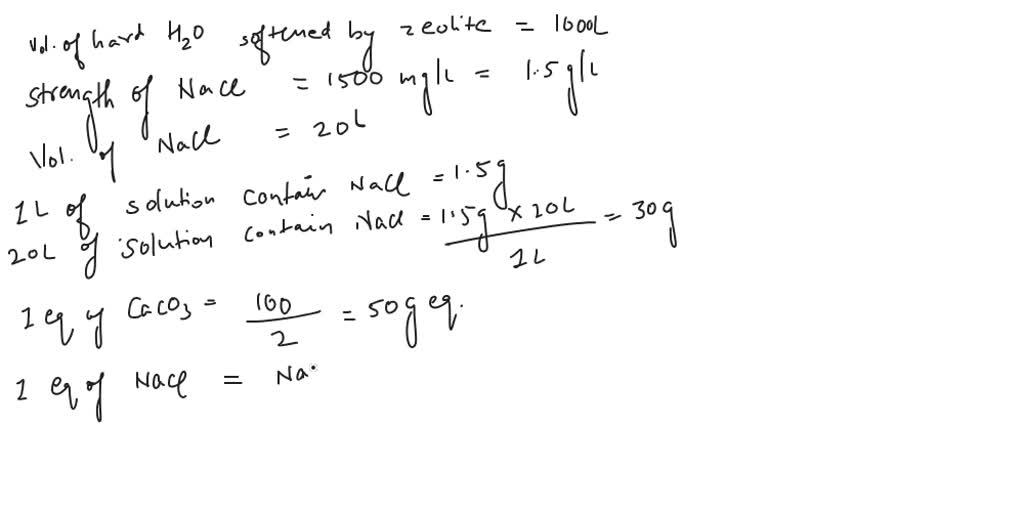 Vol. of hard H₂O softened by zeolite = 1000L
Strength of NaCl = 1500 mg/L = 1.5 g/L
Vol. of NaCl = 20L
1L of solution contain NaCl = 1.5g
20L of solution contain NaCl = 1.5g × 20L / 1L = 30g
1 eq of CaCO₃ = 100 / 2 = 50g eq.
1 eq of NaCl = Na